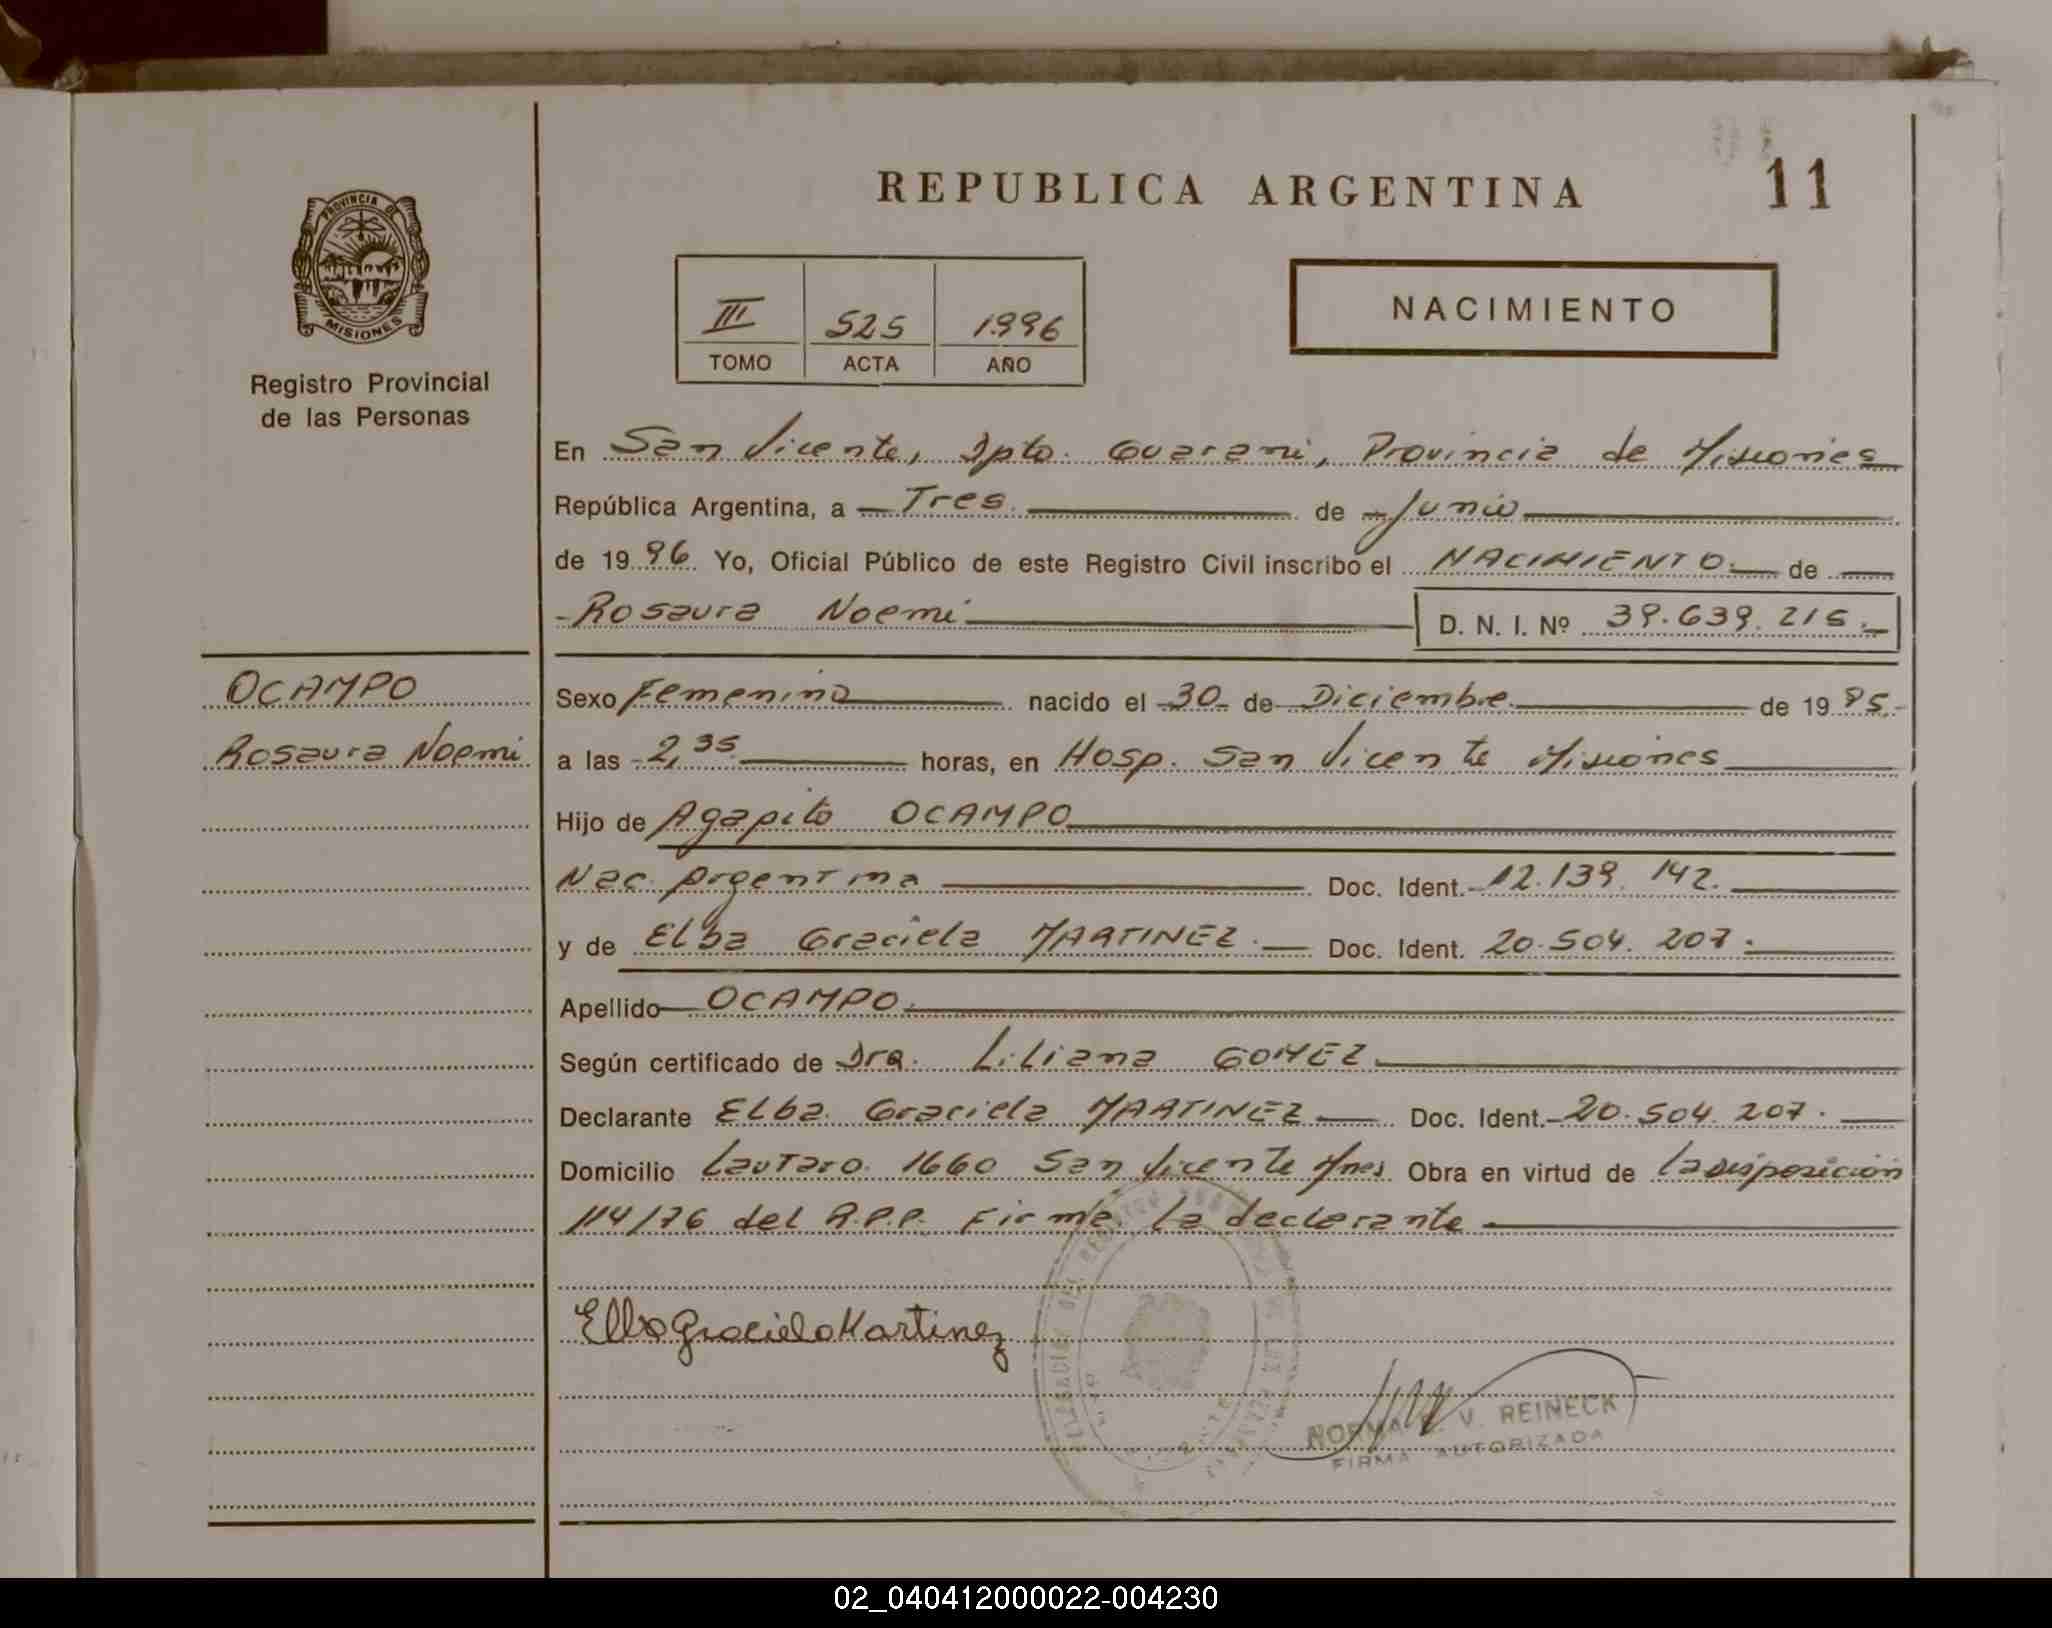 REPUBLICA ARGENTINA
11
PROVINCIA DE
MISIONES
Registro Provincial
de las Personas
III 525 1996
TOMO ACTA AÑO
NACIMIENTO
En San Vicente, Dpto. Guarani, Provincia de Misiones
República Argentina, a Tres de Junio
de 1996 Yo, Oficial Público de este Registro Civil inscribo el NACIMIENTO de
Rosaura Noemi D. N. I. Nº 39.639.215.
OCAMPO
Rosaura Noemi
Sexo Femenino nacido el 30 de Diciembre de 1995.
a las 2,35 horas, en Hosp. San Vicente Misiones
Hijo de Agapito OCAMPO
Nac. Argentina Doc. Ident. 12.139.142.
y de Elba Graciela MARTINEZ. Doc. Ident. 20.504.207.
Apellido OCAMPO.
Según certificado de Dra. Liliana GOMEZ
Declarante Elba Graciela MARTINEZ Doc. Ident. 20.504.207.
Domicilio Lautaro 1660 San Vicente Mnes Obra en virtud de la disposición
114/76 del R.P.P. Firme la declarante
Elba Graciela Martinez
NORMA V. REINECK
FIRMA AUTORIZADA
02_040412000022-004230